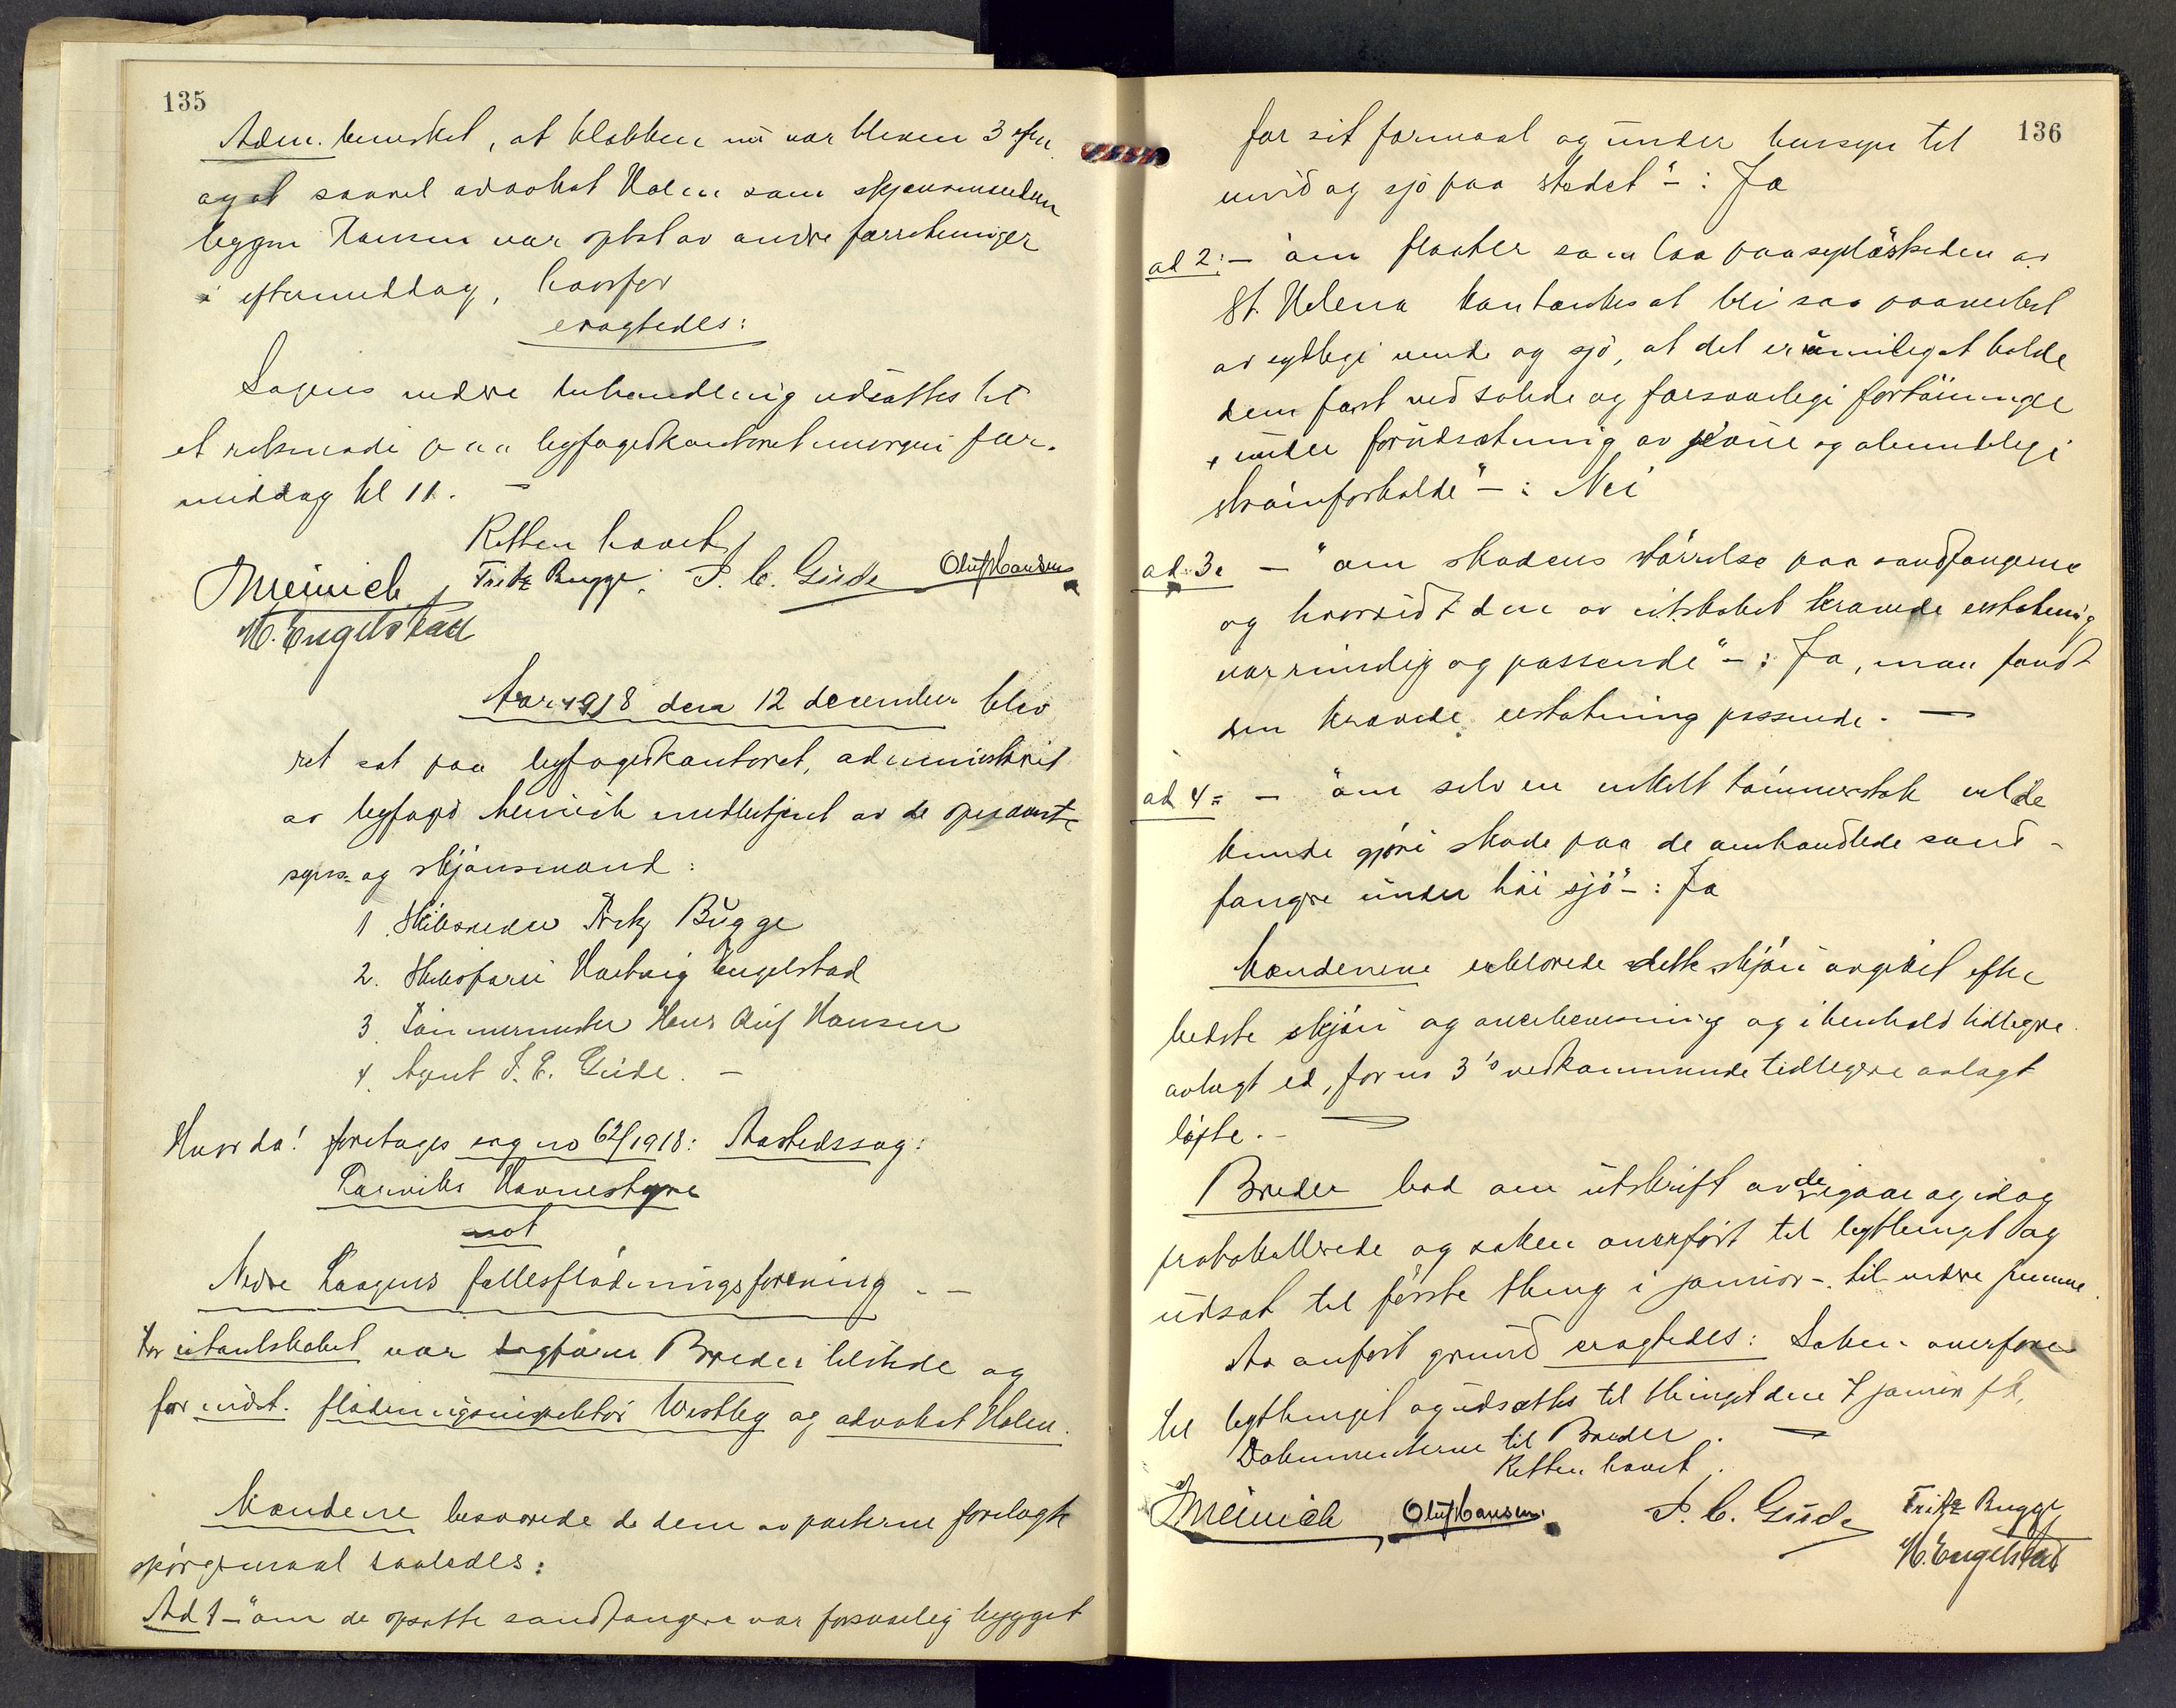 135
Adm. bemerket, at klokken nu var bleven 3 efm
og at saavel advokat Holm som skjønsmanden
byggm Hansen var optat av andre forretninger
i eftermiddag, hvorfor
eragtedes:
Sagens videre behandling udsættes til
et retsmøde paa byfogedkontoret morgen for-
middag kl 11. –
Retten hævet
JMeinich Fritz Bugge. P. C. Gude Oluf Hansen
H. Engelstad
Aar 1918 den 12 december blev
ret sat paa byfogedkontoret, administrert
av byfoged Meinich medbetjent av de opnævnte
syns- og skjønsmænd:
1. Skibsreder Fritz Bugge
2. Skibsfører Hartvig Engelstad
3. Tømmermester Hans Oluf Hansen
4. Agent P. C. Gude. –
Hvor da! foretoges sag no 62/1918: Aastedssag:
Larviks Havnestyre
mot
Nedre Laagens fellesflødningsforening. –
For citantskabet var sagfører Breder tilstede og
for indst. flødningsinspektør Westby og advokat Holm.
Mændene besvarede de dem av parterne forelagte
spørgsmaal saaledes:
Ad 1 – "om de opsatte sandfangere var forsvarlig bygget
136
for sit formaal og under hensyn til
vind og sjø paa stedet" – : Ja
ad 2: – "om flaater som laa paa sydøstsiden av
St. Helena kan tænkes at bli saa paavirket
av sydlige vinde og sjø, at det er umulig at holde
dem fast ved solide og forsvarlige fortøininger
under forudsætning av jevne og almindelige
strømforholde" – : Nei
ad. 3. – "om skadens størrelse paa sandfangerne
og hvorvidt den av cit.skabet krævede erstatning
var rimelig og passende" – : Ja, man fandt
den krævede erstatning passende. –
ad 4 = – "om selv en enkelt tømmerstok vilde
kunde gjøre skade paa de omhandlede sand-
fangre under høi sjø" – : Ja
Mændenene erklærede dette skjøn avgivet efter
bedste skjøn og overbevisning og i henhold tidligere
avlagt ed, for no 3's vedkommende tidligere avlagt
løfte. –
Breder bad om utskrift av de igaar og idag
protokollerede og saken overført til bythinget og
udsat til første thing i januar – til videre fremme.
Av anført grund eragtedes: Saken overføres
til bythinget og udsættes til thinget den 7 januar f k,
Dokumenterne til Breder. –
Retten hævet.
JMeinich Oluf Hansen. P. C. Gude Fritz Bugge
H. Engelstad